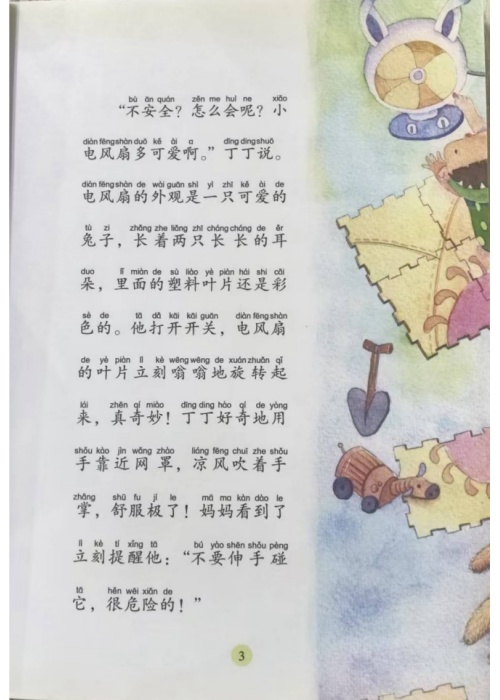 bù ān quán zěn me huì ne xiǎo
“不安全？怎么会呢？小
diàn fēng shàn duō kě ài a dīng dīng shuō
电风扇多可爱啊。”丁丁说。
diàn fēng shàn de wài guān shì yì zhī kě ài de
电风扇的外观是一只可爱的
tù zi zhǎng zhe liǎng zhī cháng cháng de ěr
兔子，长着两只长长的耳
duo lǐ miàn de sù liào yè piàn hái shi cǎi
朵，里面的塑料叶片还是彩
sè de tā dǎ kāi kāi guān diàn fēng shàn
色的。他打开开关，电风扇
de yè piàn lì kè wēng wēng de xuán zhuǎn qǐ
的叶片立刻嗡嗡地旋转起
lái zhēn qí miào dīng dīng hào qí de yòng
来，真奇妙！丁丁好奇地用
shǒu kào jìn wǎng zhào liáng fēng chuī zhe shǒu
手靠近网罩，凉风吹着手
zhǎng shū fu jí le mā ma kàn dào le
掌，舒服极了！妈妈看到了
lì kè tí xǐng tā bú yào shēn shǒu pèng
立刻提醒他：“不要伸手碰
tā hěn wēi xiǎn de
它，很危险的！”
3